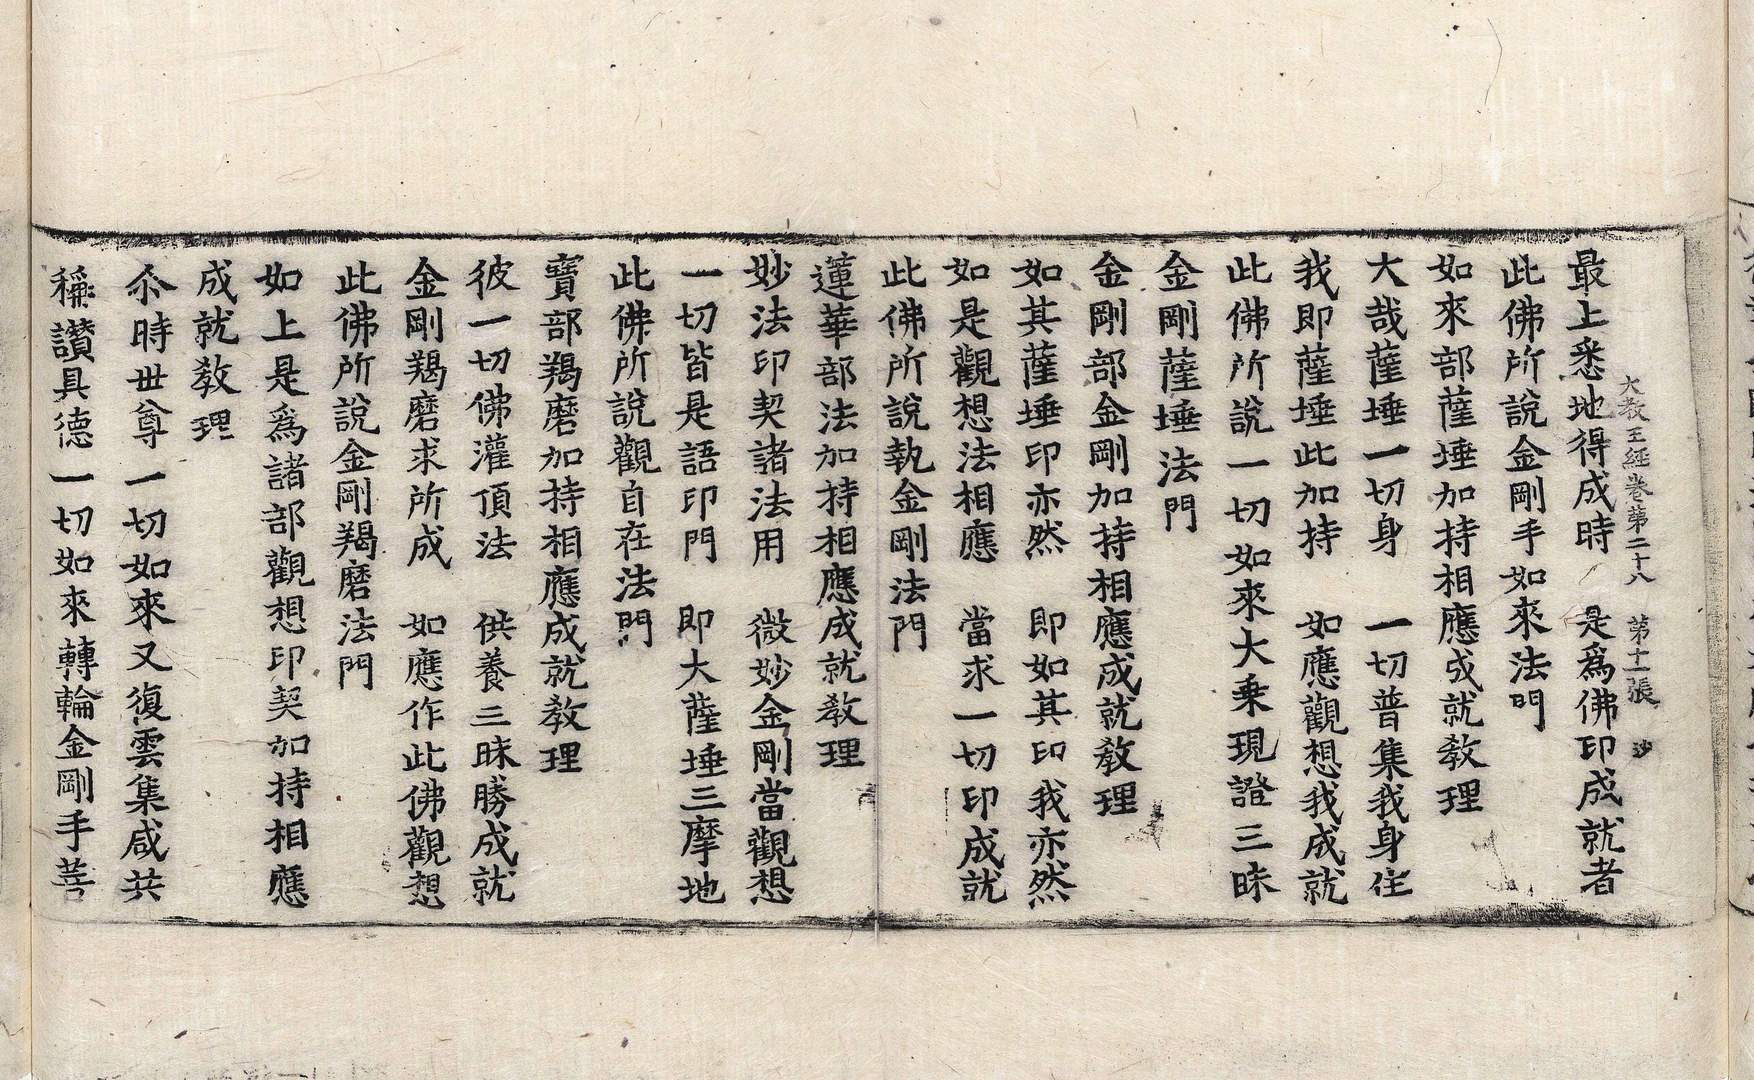 大教王經卷第二十八　第十一張　沙
最上悉地得成時　是爲佛印成就者
此佛所說金剛手如來法門
如來部薩埵加持相應成就教理
大哉薩埵一切身　一切普集我身住
我即薩埵此加持　如應觀想我成就
此佛所說一切如來大乘現證三昧
金剛薩埵法門
金剛部金剛加持相應成就教理
如其薩埵印亦然　即如其印我亦然
如是觀想法相應　當求一切印成就
此佛所說執金剛法門
蓮華部法加持相應成就教理
妙法印契諸法用　微妙金剛當觀想
一切皆是語印門　即大薩埵三摩地
此佛所說觀自在法門
寶部羯磨加持相應成就教理
彼一切佛灌頂法　供養三昧勝成就
金剛羯磨求所成　如應作此佛觀想
此佛所說金剛羯磨法門
如上是爲諸部觀想印契加持相應
成就教理
尒時世尊一切如來又復雲集咸共
稱讚具德一切如來轉輪金剛手菩